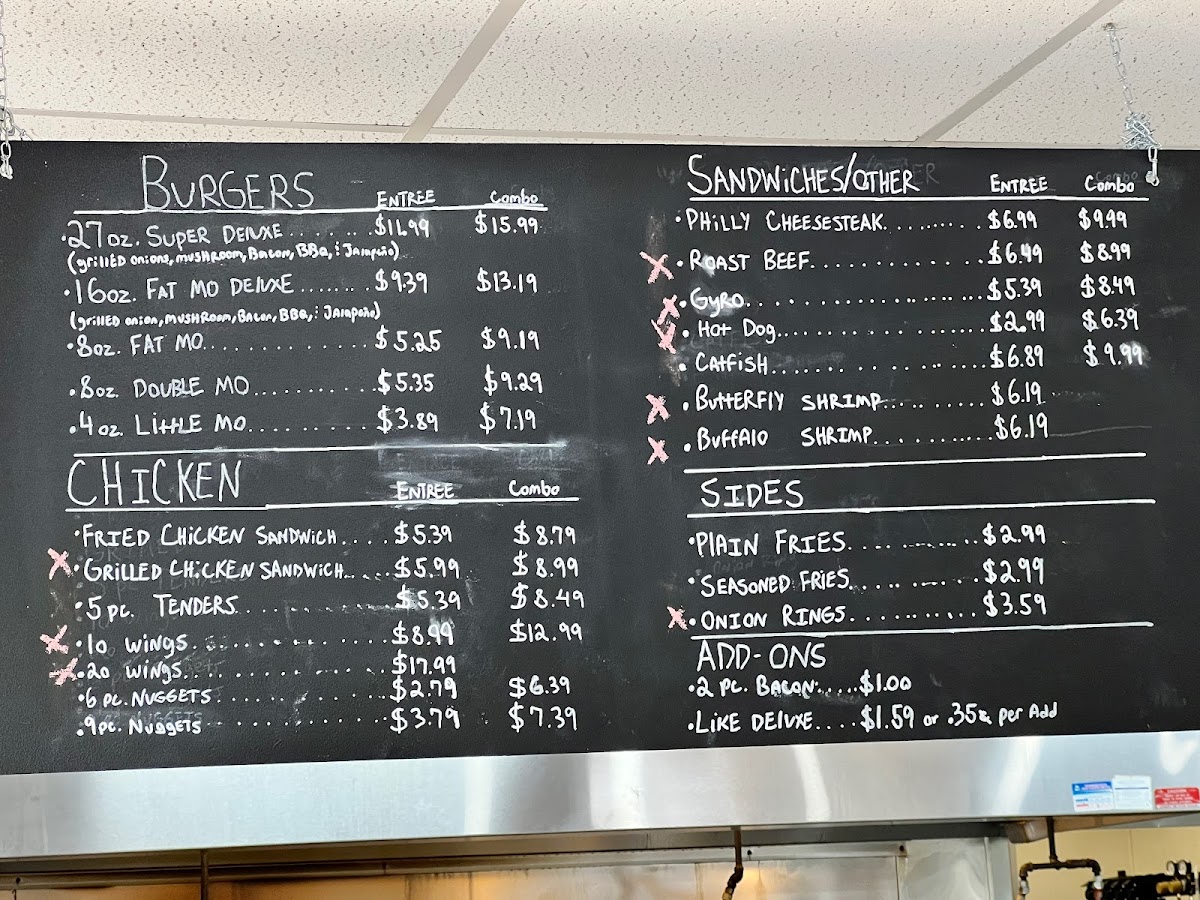 BURGERS ENTREE Combo
•27oz. SUPER DElUXE........$11.99 $15.99
(grillED onions, mUSHROOm, Bacon, BBQ, & Jalapeño)
•16oz. FAT MO DElUXE.......$9.39 $13.19
(grillED onion, mUSHROOm, Bacon, BBQ, & Jalapeño)
•8oz. FAT MO...............$5.25 $9.19
•8oz. DOUBLE MO..........$5.35 $9.29
•4oz. LittLE MO...........$3.89 $7.19
CHICKEN ENTREE Combo
•FRIED CHiCKEN SANDWiCH....$5.39 $8.79
X•GRILLED CHiCKEN SANDWiCH.....$5.99 $8.99
•5pc. TENDERS..............$5.39 $8.49
X•10 wings................$8.99 $12.99
X•20 wings................$17.99
•6 pc. NUGGETS.............$2.79 $6.39
•9pc. NuggEts.............$3.79 $7.39
SANDWiCHES/OTHER ENTREE Combo
•PHillY CHEESESTEAK...........$6.99 $9.99
X•ROAST BEEF.................$6.49 $8.99
X•GyRO......................$5.39 $8.49
X•Hot Dog...................$2.99 $6.39
•CAtfiSH...................$6.89 $9.99
X•BUttERFlY SHRIMP..........$6.19
X•BUffAlO SHRIMP...........$6.19
SIDES
•PlAIN FRIES.............$2.99
•SEASONED FRiES..........$2.99
X•ONION RINGS............$3.59
ADD-ONS
•2 PC. BACON.....$1.00
•LIKE DElUXE....$1.59 or .35¢ per Add